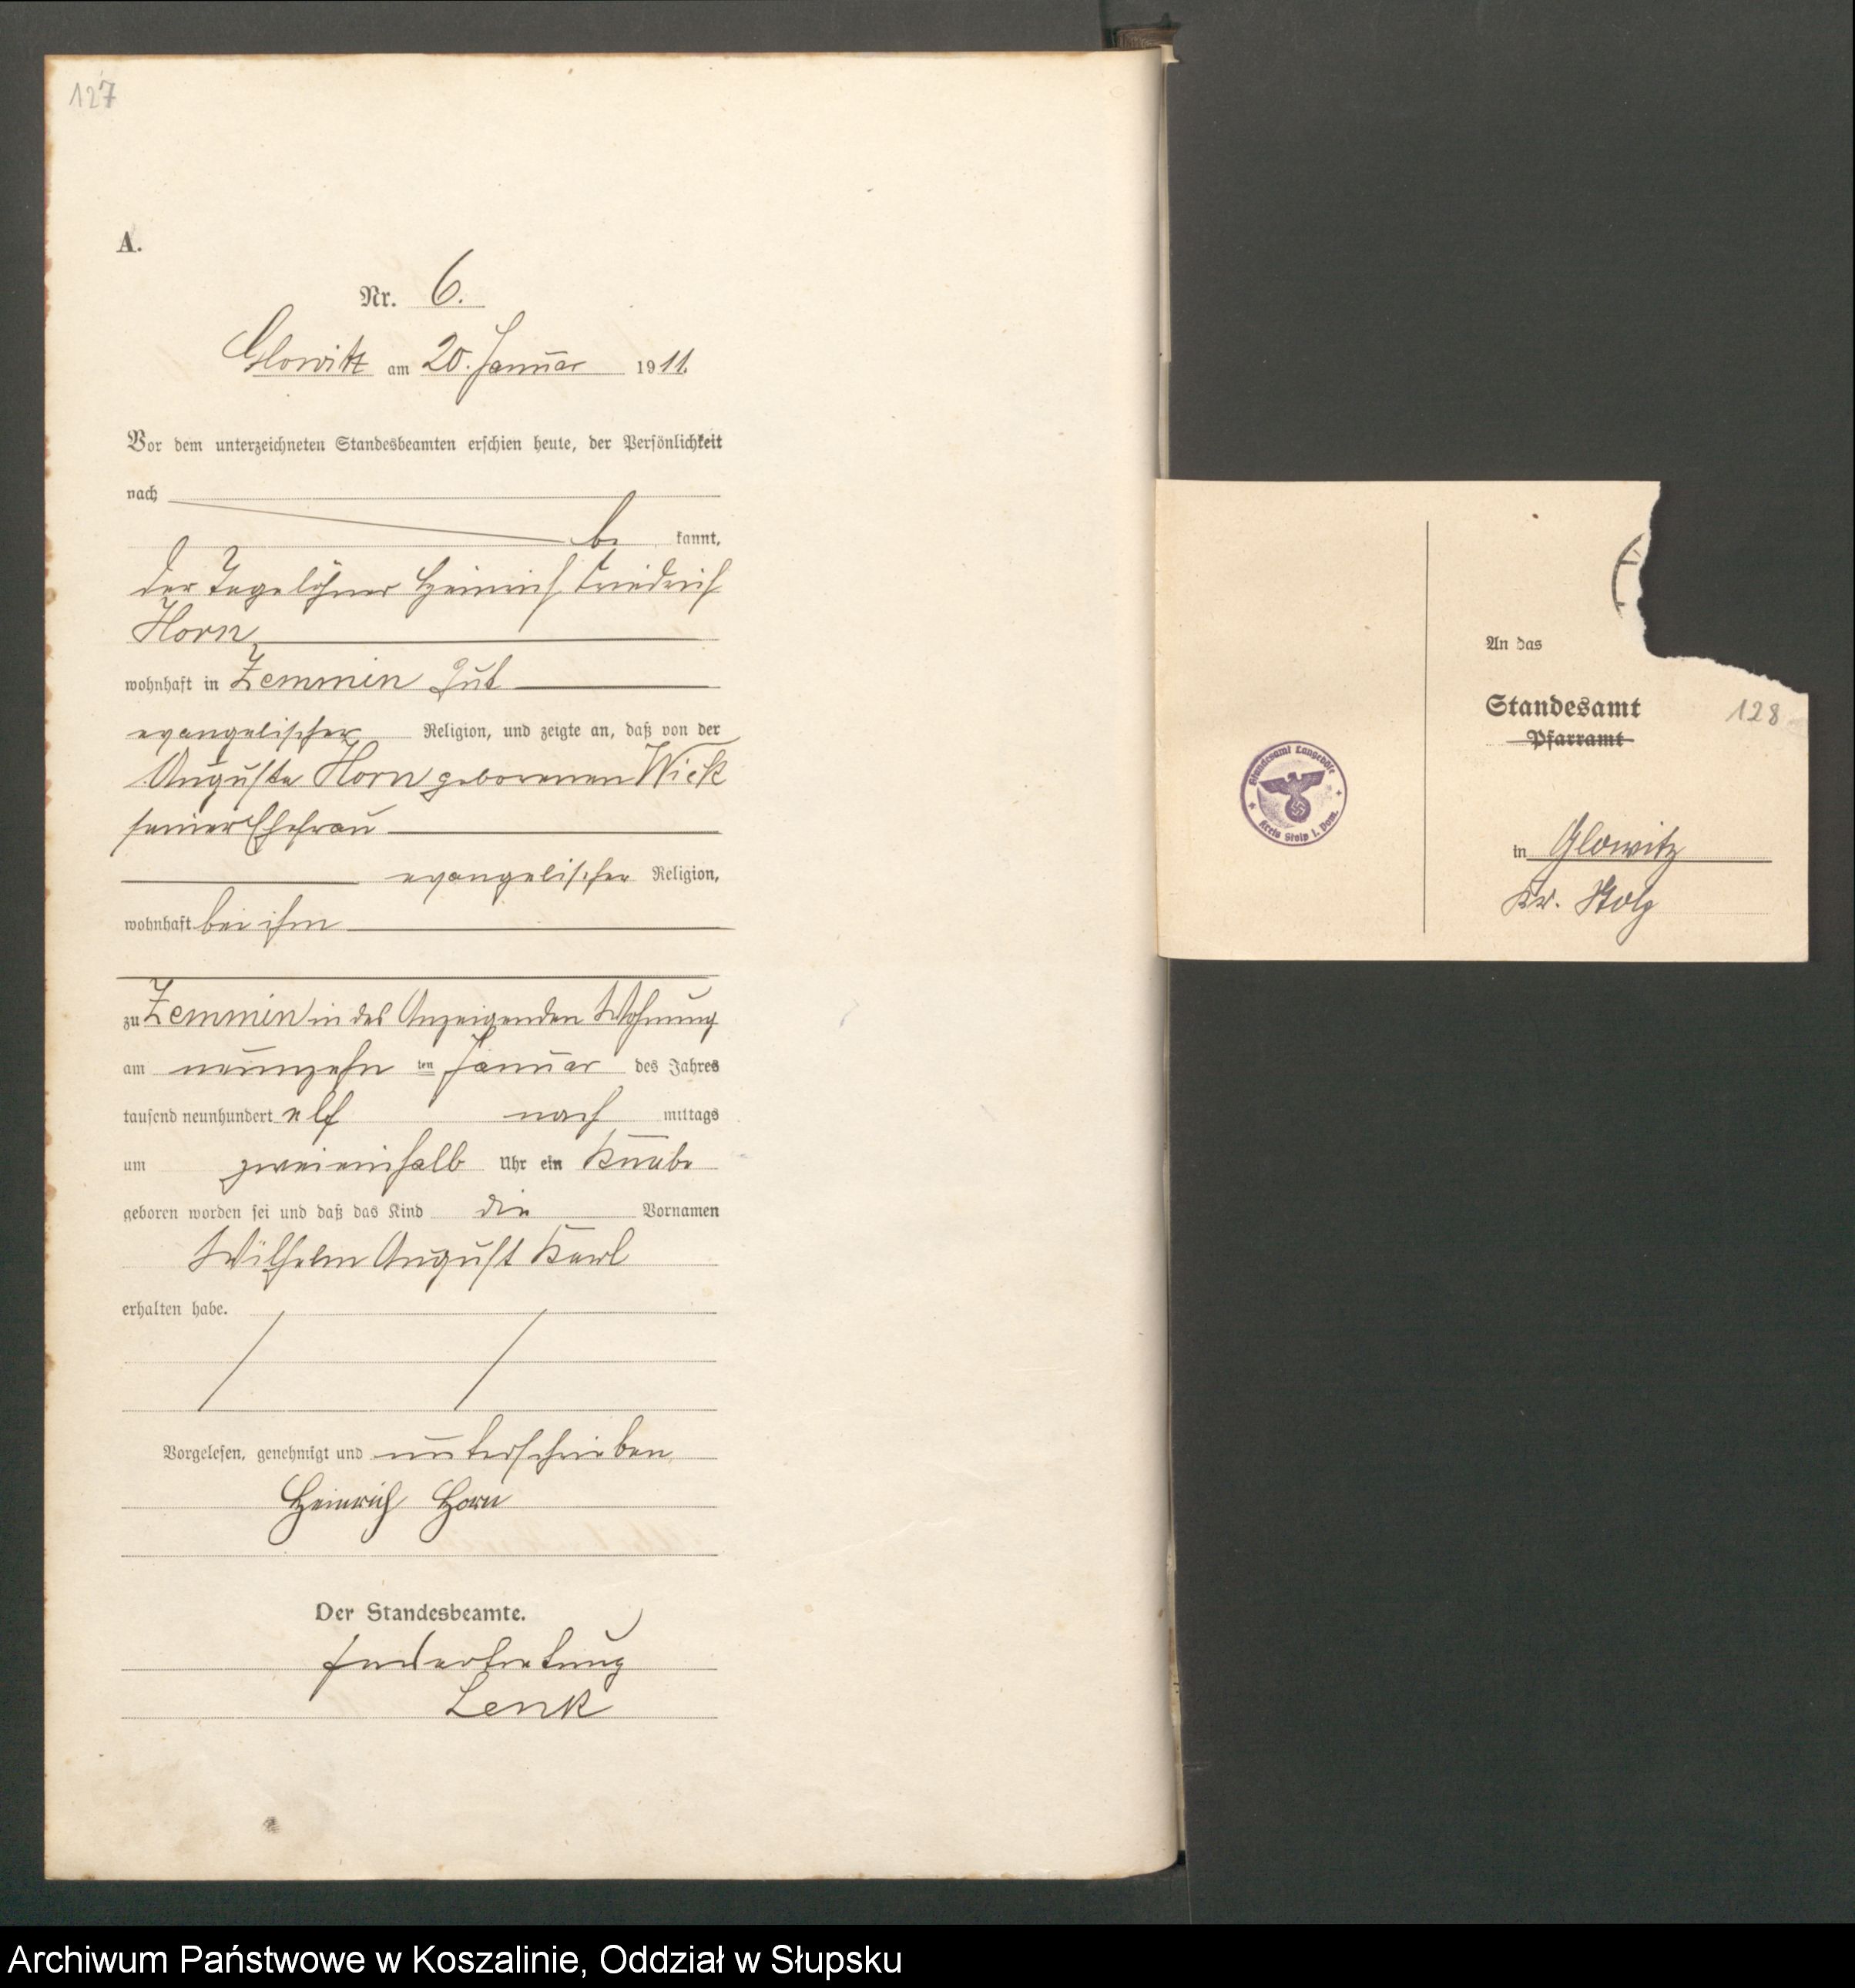 127
A.
Nr. 6.
Glowitz am 20. Januar 1911.
Vor dem unterzeichneten Standesbeamten erschien heute, der Persönlichkeit
nach
be kannt,
der Tagelöhner Heinrich Friedrich
Horn,
wohnhaft in Zemmin Gut
evangelischer Religion, und zeigte an, daß von der
Auguste Horn geborenen Wick
seiner Ehefrau
evangelischer Religion,
wohnhaft bei ihm
zu Zemmin in des Anzeigenden Wohnung
am neunzehn ten Januar des Jahres
tausend neunhundert elf nach mittags
um zweieinhalb Uhr ein Knabe
geboren worden sei und daß das Kind die Vornamen
Wilhelm August Karl
erhalten habe.
Vorgelesen, genehmigt und unterschrieben
Heinrich Horn
Der Standesbeamte.
In Vertretung
Lenk
An das
Standesamt
Pfarramt
128
in Glowitz
Kr. Stolp
Standesamt Langeböse
Kreis Stolp i. Pom.
Archiwum Państwowe w Koszalinie, Oddział w Słupsku